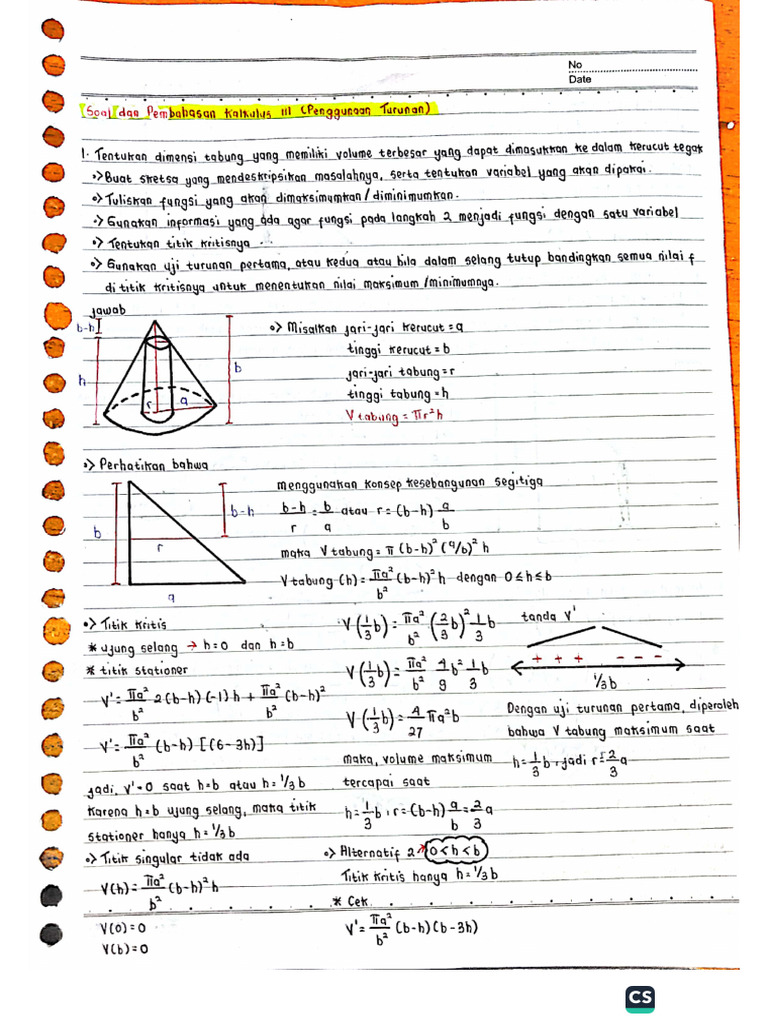 No
Date
Soal dan Pembahasan Kalkulus III (Penggunaan Turunan)
1. Tentukan dimensi tabung yang memiliki volume terbesar yang dapat dimasukkan ke dalam kerucut tegak
•> Buat sketsa yang mendeskripsikan masalahnya, serta tentukan variabel yang akan dipakai.
•> Tuliskan fungsi yang akan dimaksimumkan/diminimumkan.
•> Gunakan informasi yang ada agar fungsi pada langkah 2 menjadi fungsi dengan satu variabel
•> Tentukan titik kritisnya
•> Gunakan uji turunan pertama, atau kedua atau bila dalam selang tutup bandingkan semua nilai f
di titik kritisnya untuk menentukan nilai maksimum/minimumnya.
Jawab
b-h
h
r
a
b
•> Misalkan jari-jari kerucut = a
tinggi kerucut = b
jari-jari tabung = r
tinggi tabung = h
V tabung = πr²h
•> Perhatikan bahwa
b
r
a
b-h
menggunakan konsep kesebangunan segitiga
(b-h)/r = b/a atau r = (b-h) a/b
maka V tabung = π (b-h)² (a/b)² h
V tabung (h) = πa²/b² (b-h)² h dengan 0 ≤ h ≤ b
•> Titik kritis
* ujung selang → h = 0 dan h = b
* titik stationer
V' = πa²/b² 2(b-h)(-1)h + πa²/b² (b-h)²
V' = πa²/b² (b-h) [(6-3h)]
jadi, V' = 0 saat h = b atau h = 1/3 b
karena h = b ujung selang, maka titik
stationer hanya h = 1/3 b
•> Titik singular tidak ada
V(h) = πa²/b² (b-h)² h
V(0) = 0
V(b) = 0
V(1/3 b) = πa²/b² (2/3 b)² 1/3 b
V(1/3 b) = πa²/b² 4/9 b² 1/3 b
V(1/3 b) = 4/27 πa²b
maka, volume maksimum
tercapai saat
h = 1/3 b, r = (b-h) a/b = 2/3 a
•> Alternatif 2 → 0 < h < b
Titik kritis hanya h = 1/3 b
* Cek
V' = πa²/b² (b-h)(b-3h)
tanda V'
+ + + - - -
1/3 b
Dengan uji turunan pertama, diperoleh
bahwa V tabung maksimum saat
h = 1/3 b, jadi r = 2/3 a
CS